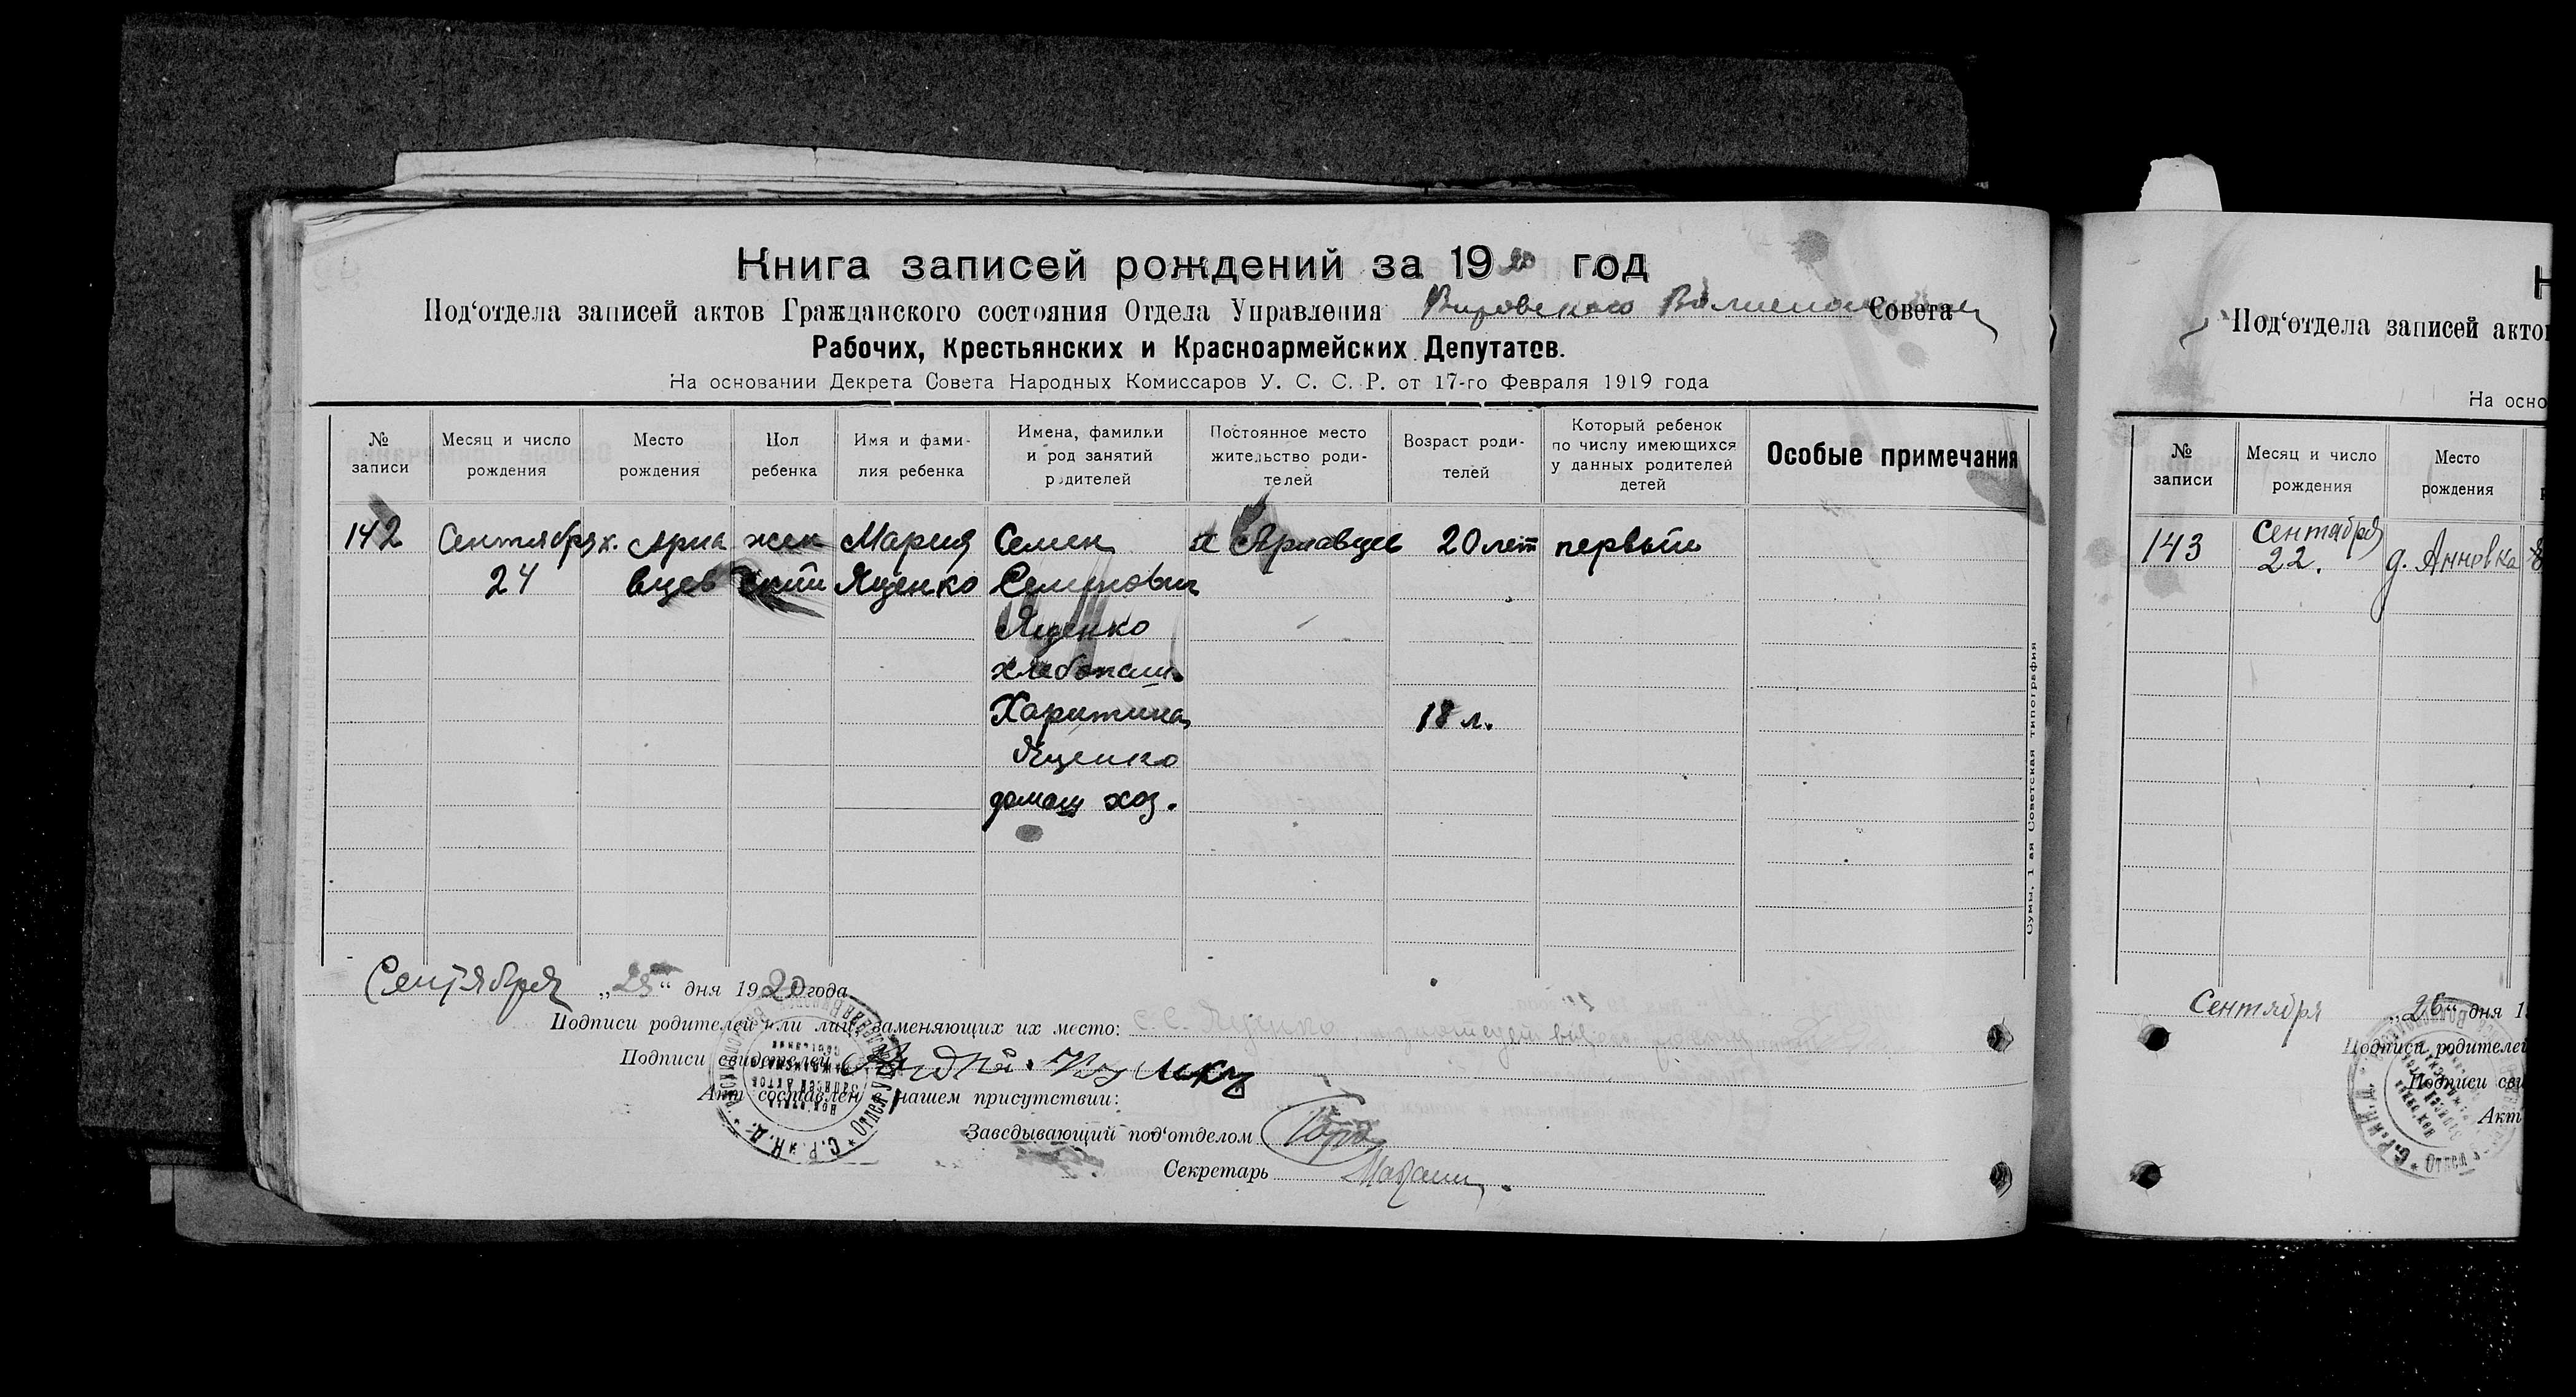 Книга записей рождений за 1920 год
Под‘отдела записей актов Гражданского состояния Отдела Управления Вировского Совета
Рабочих, Крестьянских и Красноармейских Депутатов.
На основании Декрета Совета Народных Комиссаров У. С. С. Р. от 17-го Февраля 1919 года
№ записи
Месяц и число рождения
Место рождения
Пол ребенка
Имя и фами-
лия ребенка
Имена, фамилии
и род занятий
родителей
Постоянное место
жительство роди-
телей
Возраст роди-
телей
Который ребенок
по числу имеющихся
у данных родителей
детей
Особые примечания
142 Сентября х. Ярна жен Мария Семен х Ярнавцев 20 лет первый
24 вцев ский Яценко Семенович
Яценко
хлебопаш.
Харитина 18 л.
Яценко
домаш хоз.
Сентября „25“ дня 1920 года
Подписи родителей или лиц, заменяющих их место: С. Яценко
Подписи свидетелей
Акт составлен в нашем присутствии:
Заведывающий под‘отделом
Секретарь
Сумы, 1-ая Советская типография
Под‘отдела записей акто
На осно
№ записи
Месяц и число рождения
Место рождения
143 Сентября
22. д. Анновка
Сентября „26“ дня 1
Подписи родителей
Подписи сви
Акт